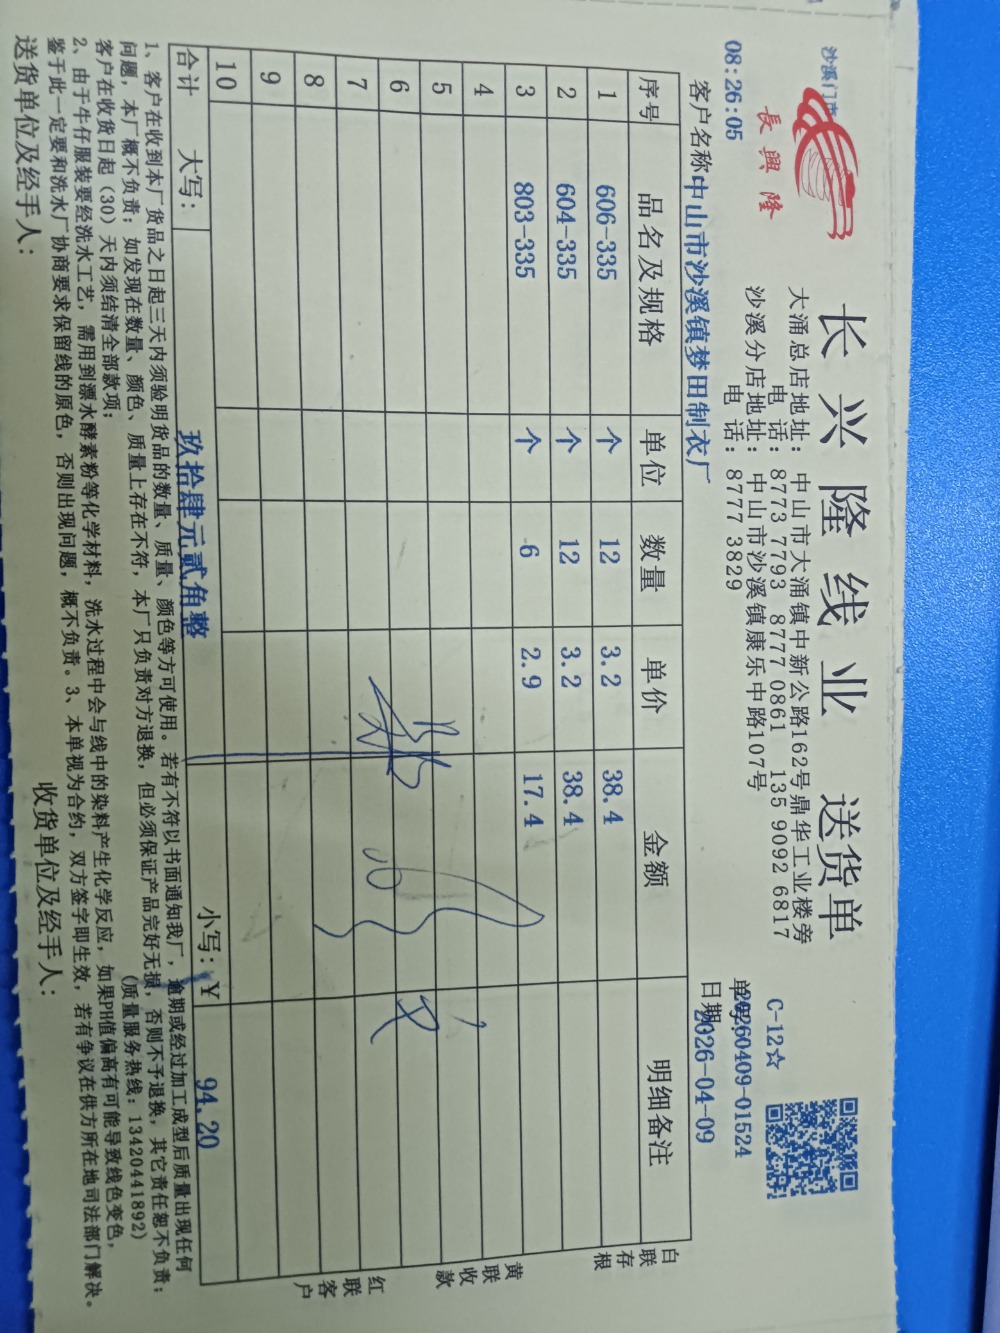 沙溪门市
長興隆
08:26:05
长兴隆线业 送货单
大涌总店地址：中山市大涌镇中新公路162号鼎华工业楼旁
电话：8773 7793 8777 0861 135 9092 6817
沙溪分店地址：中山市沙溪镇康乐中路107号
电话：8777 3829
C-12☆
单号：20260409-01524
日期：2026-04-09
客户名称 中山市沙溪镇梦田制衣厂
序号 品名及规格 单位 数量 单价 金额 明细备注
1 606-335 个 12 3.2 38.4
2 604-335 个 12 3.2 38.4
3 803-335 个 6 2.9 17.4
4
5
6
7
8
9
10
合计 大写： 玖拾肆元贰角整 小写：￥ 94.20
白联存根
黄联收款
红联客户
1、客户在收到本厂货品之日起三天内须验明货品的数量、质量、颜色等方可使用。若有不符以书面通知我厂，逾期或经过加工成型后质量出现任何
问题，本厂概不负责；如发现在数量、颜色、质量上存在不符，本厂只负责对方退换，但必须保证产品完好无损，否则不予退换，其它责任恕不负责；
客户在收货日起（30）天内须结清全部款项； (质量服务热线：13420441892)
2、由于牛仔服装要经洗水工艺，需用到漂水酵素粉等化学材料，洗水过程中会与线中的染料产生化学反应，如果PH值偏高有可能导致线色变色，
鉴于此一定要和洗水厂协商要求保留线的原色，否则出现问题，概不负责。3、本单视为合约，双方签字即生效，若有争议在供方所在地司法部门解决。
送货单位及经手人： 收货单位及经手人：